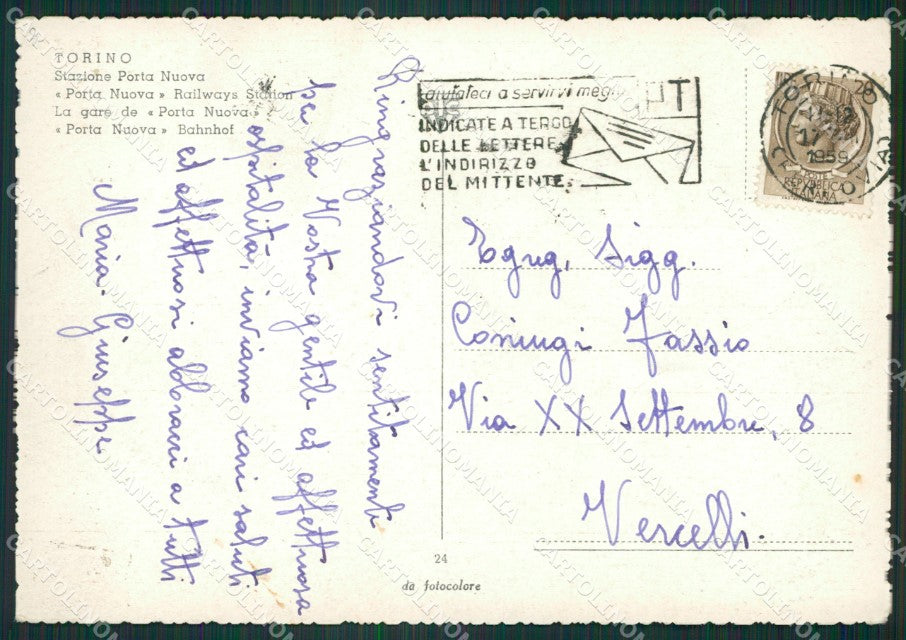 TORINO
Stazione Porta Nuova
« Porta Nuova » Railways Station
La gare de « Porta Nuova »
« Porta Nuova » Bahnhof
Ringraziandovi sentitamente
per la Vostra gentile ed affettuosa
ospitalità, inviamo cari saluti
ed affettuosi abbracci a tutti
Maria. Giuseppe
aiutateci a servirvi meglio
PT
INDICATE A TERGO
DELLE LETTERE
L'INDIRIZZO
DEL MITTENTE
TORINO
17
1959
REPUBBLICA
ITALIANA
Egreg. Sigg.
Coniugi Fassio
Via XX Settembre, 8
Vercelli.
24
da fotocolore
CARTOLINOMANIA